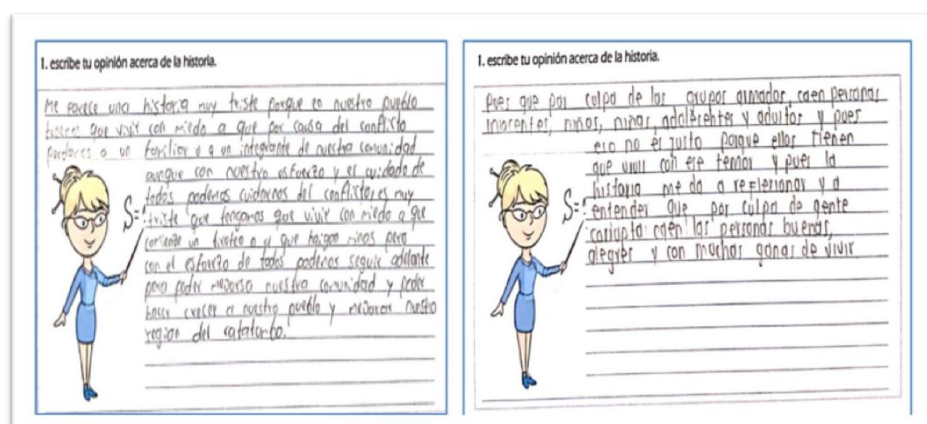 1. escribe tu opinión acerca de la historia.
Me parece una historia muy triste porque en nuestro pueblo
que vivir con miedo a que por causa del conflicto
a un familiar o a un integrante de nuestra comunidad
aunque con nuestro esfuerzo y el cuidado de
todos podemos cuidarnos del conflicto, es muy
triste que tengamos que vivir con miedo a que
comience un tiroteo o a que haigan minas pero
con el esfuerzo de todos podemos seguir adelante
para poder mejorar nuestra comunidad y poder
hacer crecer a nuestro pueblo y mejorar nuestro
region del catatumbo.
1. escribe tu opinión acerca de la historia.
Pues que por culpa de los grupos armados caen personas
inocentes, niños, niñas, adolecentes y adultos y pues
eso no es justo porque ellos tienen
que vivir con ese temor y pues la
historia me da a reflexionar y a
entender que por culpa de gente
corrupta caen las personas buenas,
alegres y con muchas ganas de vivir